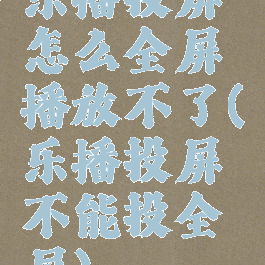 乐播投屏
怎么全屏
播放不了(
乐播投屏
不能投全
屏)